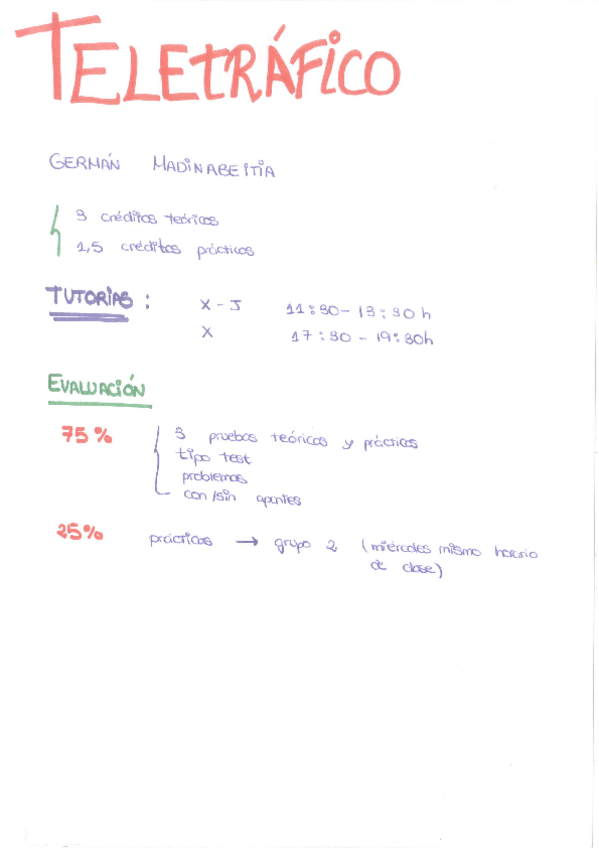 TELETRÁFICO
GERMÁN MADINABEITIA
3 créditos teóricos
1,5 créditos prácticos
TUTORIAS : X - J 11:30 - 13:30 h
X 17:30 - 19:30h
EVALUACIÓN
75% 3 pruebas teóricas y prácticas
tipo test
problemas
con/sin apuntes
25% prácticas → grupo 2 (miércoles mismo horario
de clase)